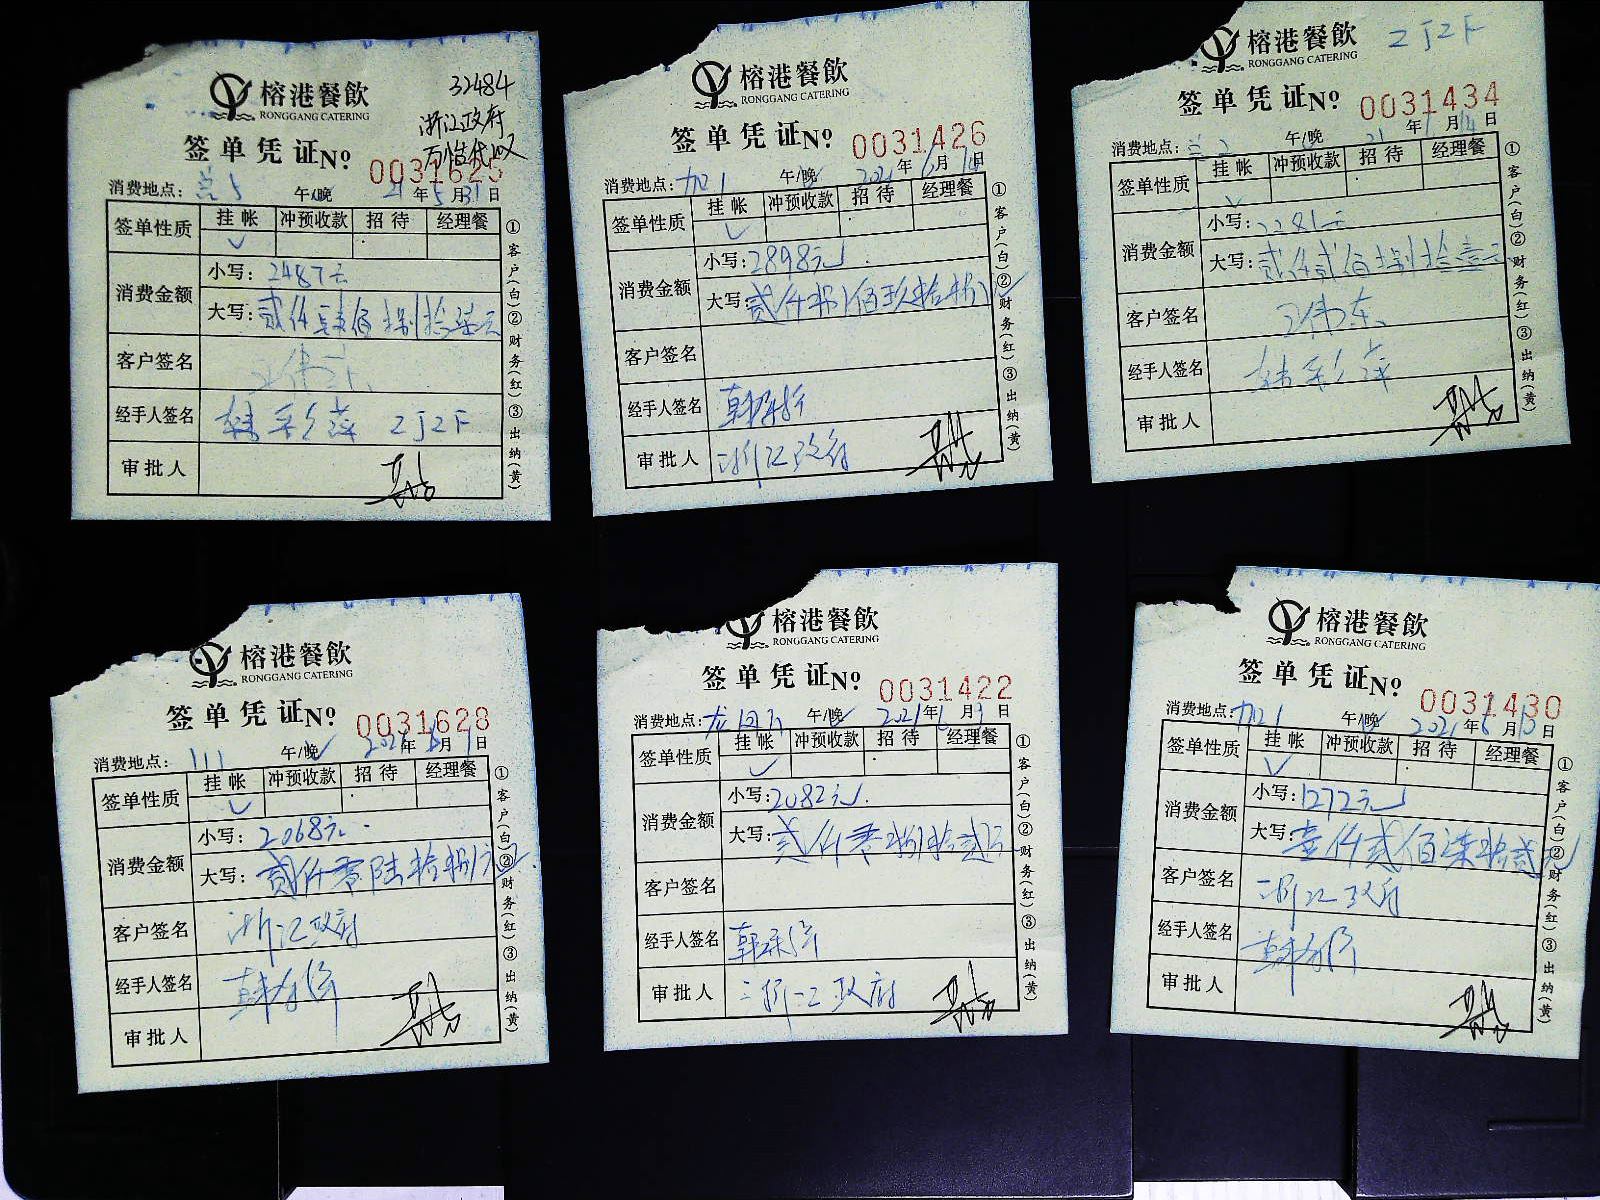 榕港餐飲
RONGGANG CATERING
32484
浙江政府
签单凭证No 0031625
消费地点: 兰5 午/晚 21年5月31日
签单性质 挂帐 冲预收款 招待 经理餐
消费金额 小写: 2487元
大写: 贰仟肆佰捌拾柒元
客户签名
经手人签名 韩彩萍 ZJZF
审批人
①客户(白)②财务(红)③出纳(黄)
榕港餐飲
RONGGANG CATERING
签单凭证No 0031426
消费地点: 加1 午/晚 2021年6月10日
签单性质 挂帐 冲预收款 招待 经理餐
消费金额 小写: 2898元
大写: 贰仟捌佰玖拾捌
客户签名
经手人签名
审批人 浙江政府
①客户(白)②财务(红)③出纳(黄)
ZJZF
榕港餐飲
RONGGANG CATERING
签单凭证No 0031434
消费地点: 兰2 午/晚 21年 月14日
签单性质 挂帐 冲预收款 招待 经理餐
消费金额 小写: 2281元
大写: 贰仟贰佰捌拾壹元
客户签名 王伟东
经手人签名 韩彩萍
审批人
①客户(白)②财务(红)③出纳(黄)
榕港餐飲
RONGGANG CATERING
签单凭证No 0031628
消费地点: 111 午/晚 2021年6月1日
签单性质 挂帐 冲预收款 招待 经理餐
消费金额 小写: 2068元
大写: 贰仟零陆拾捌元
客户签名 浙江政府
经手人签名
审批人
①客户(白)②财务(红)③出纳(黄)
榕港餐飲
RONGGANG CATERING
签单凭证No 0031422
消费地点: 午/晚 2021年 月 日
签单性质 挂帐 冲预收款 招待 经理餐
消费金额 小写: 2082元
大写: 贰仟零捌拾贰元
客户签名
经手人签名
审批人 浙江政府
①客户(白)②财务(红)③出纳(黄)
榕港餐飲
RONGGANG CATERING
签单凭证No 0031430
消费地点: 加1 午/晚 2021年6月13日
签单性质 挂帐 冲预收款 招待 经理餐
消费金额 小写: 1272元
大写: 壹仟贰佰柒拾贰元
客户签名 浙江政府
经手人签名
审批人
①客户(白)②财务(红)③出纳(黄)